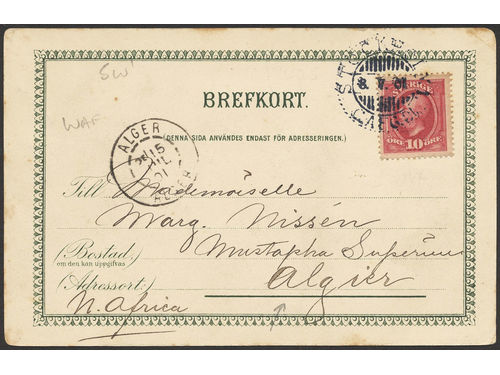 SW
WAF
BREFKORT.
(DENNA SIDA ANVÄNDES ENDAST FÖR ADRESSERINGEN.)
ÖRE 10 ÖRE
ALGER
15
01
ALGER
Till Mademoiselle
Marg. Nissén
Mustapha Superieur
(Bostad.
om den kan uppgifvas)
Algier
(Adressort.)
N. Africa